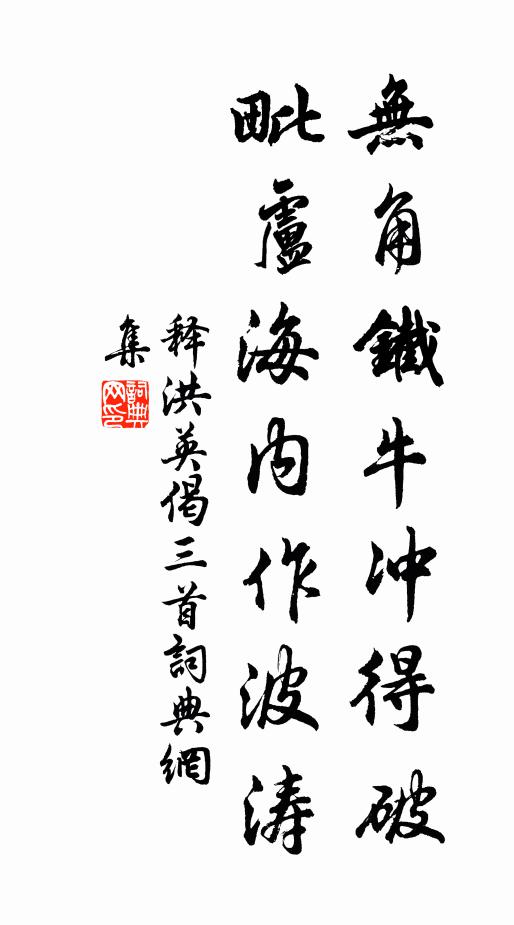 無角鐵牛冲得破
毗盧海内作波涛
释洪英偈三首詞典網
集
詞典
网印